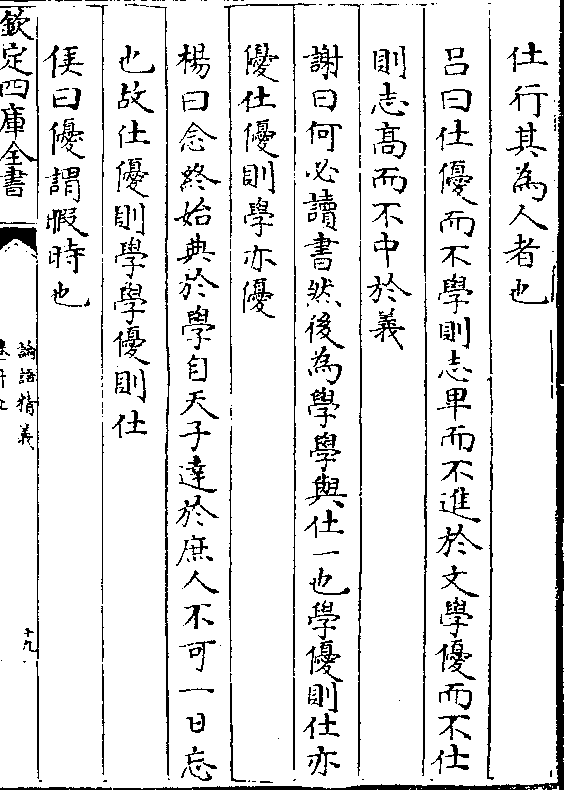 仕行其為人者也
呂曰仕優而不學則志卑而不進於文學優而不仕
則志髙而不中於義
謝曰何必讀書然後為學學與仕一也學優則仕亦
優仕優則學亦優
楊曰念終始典於學自天子達於庶人不可一日忘
也故仕優則學學優則仕
侯曰優謂暇時也
欽定四庫全書
論語精義
十九